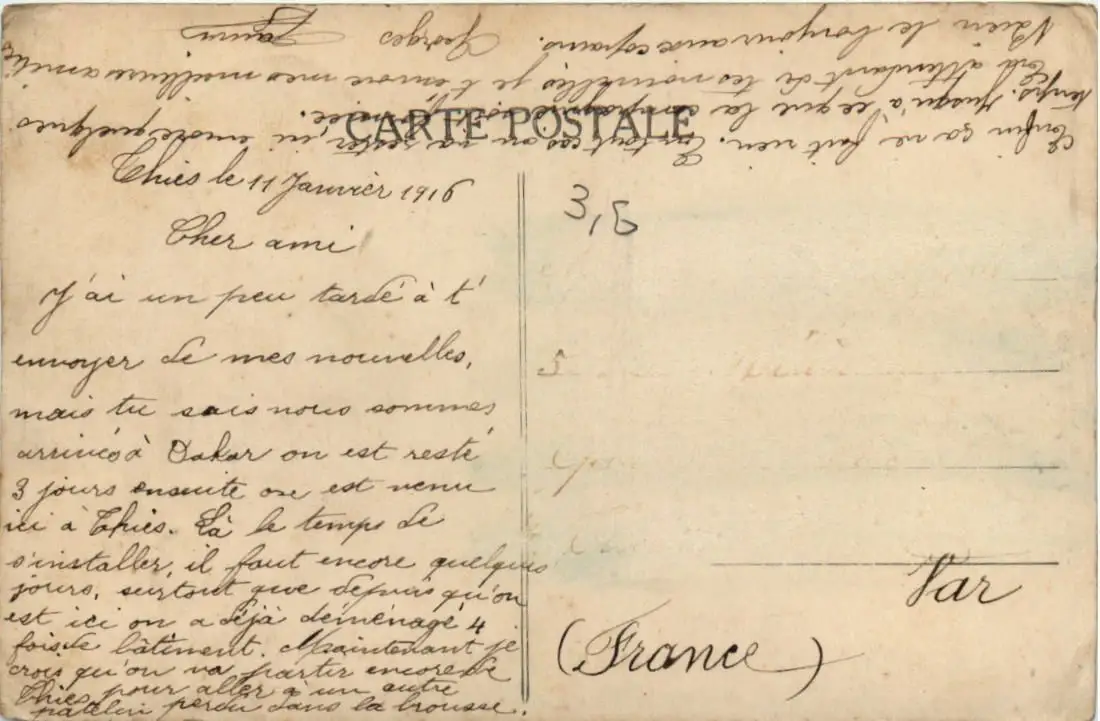 CARTE POSTALE
Thiès le 11 Janvier 1916
Cher ami
J'ai un peu tardé à t'
envoyer de mes nouvelles,
mais tu sais nous sommes
arrivés à Dakar on est resté
3 jours ensuite on est venu
ici à Thiès. Là le temps de
s'installer, il faut encore quelques
jours, surtout que depuis qu'on
est ici on a déjà déménagé 4
fois de bâtiment. Maintenant je
crois qu'on va partir encore de
Thiès pour aller à un autre
patelin perdu dans la brousse.
Enfin ça ne fait rien. En tout cas on va rester ici encore quelques
temps. Jusqu'à ce que la campagne soit finie.
En attendant de tes nouvelles je t'envoie mes meilleures amitiés
Bien le bonjour aux copains.
Georges
3,5
Var
(France)